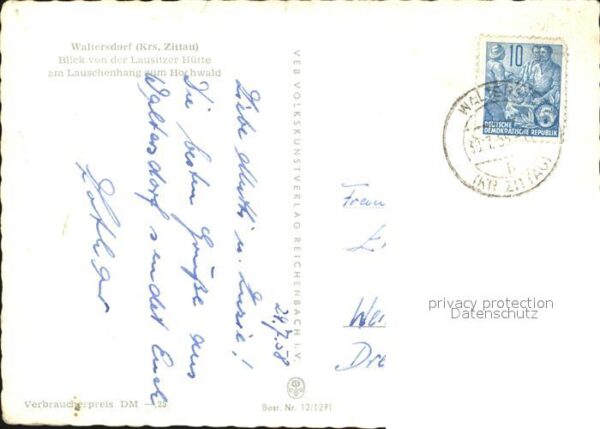 Waltersdorf (Krs. Zittau)
Blick von der Lausitzer Hütte
am Lauschenhang zum Hochwald
29.7.58
Liebe Mutti u. Susie!
Die besten Grüße aus
Waltersdorf sendet Euch
Lothar
VEB VOLKSKUNSTVERLAG REICHENBACH I. V.
10
DEUTSCHE
DEMOKRATISCHE REPUBLIK
(KR ZITTAU)
Frau
We
Dre
privacy protection
Datenschutz
Verbraucherpreis DM -,25
Bestr. Nr. 12/1271